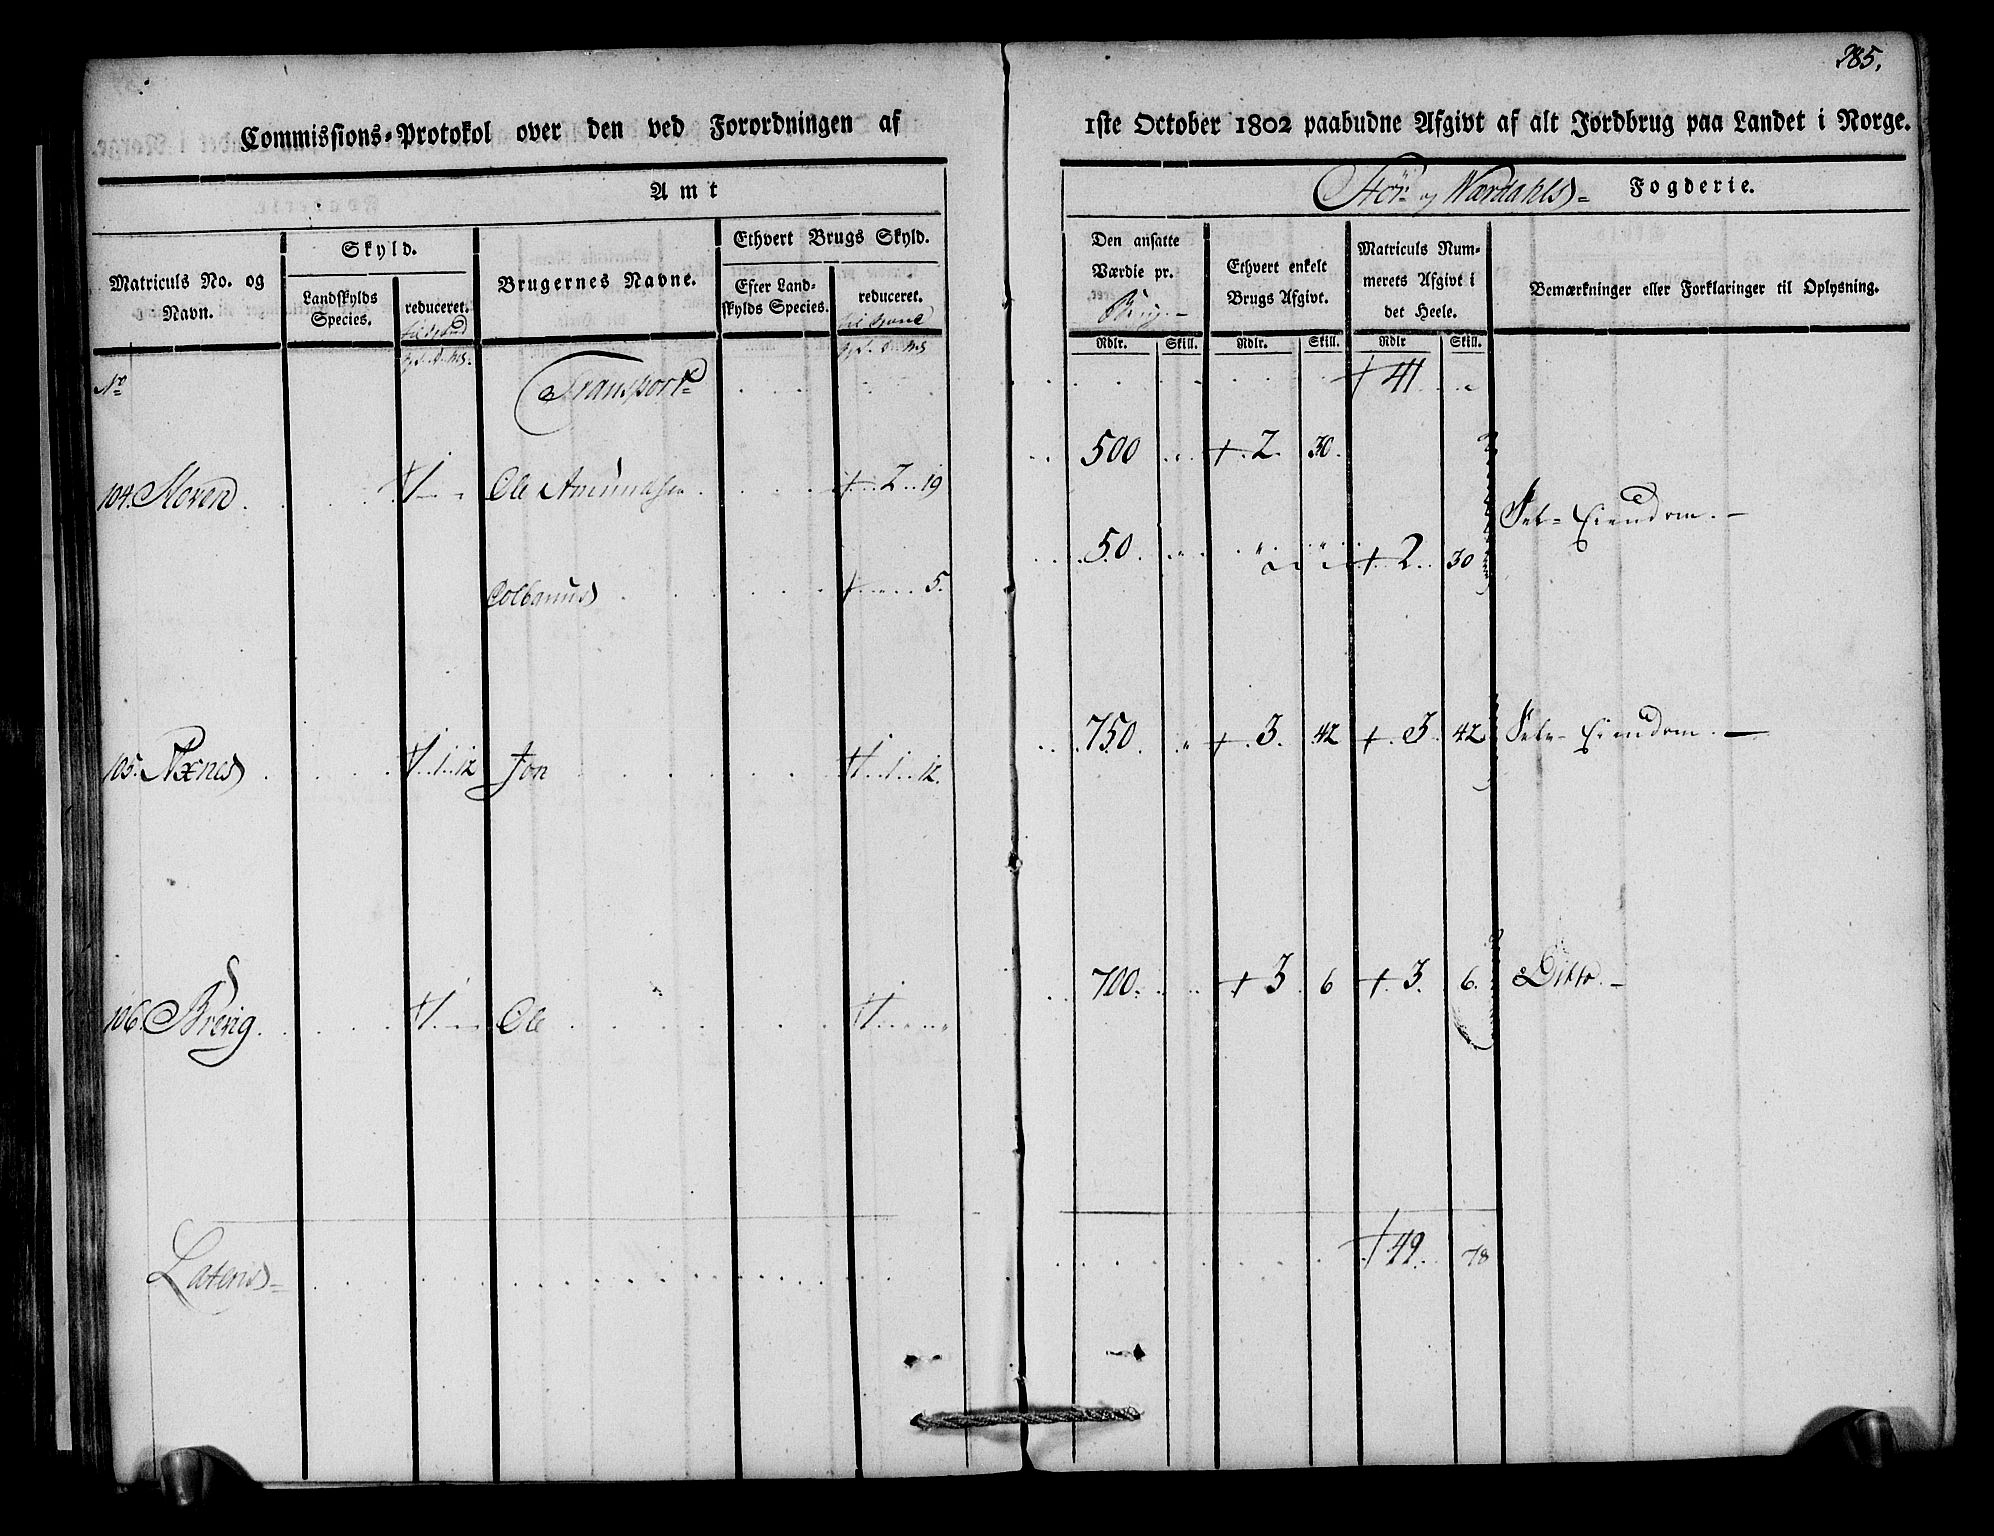 385.
Commissions-Protokol over den ved Forordningen af 1ste October 1802 paabudne Afgivt af alt Jordbrug paa Landet i Norge.
Amt Stør- og Wærdahls- Fogderie.
Matriculs No. og Navn.
Skyld.
Landskylds Species.
reduceret.
Brugernes Navne.
Ethvert Brugs Skyld.
Efter Landskylds Species.
reduceret.
Den ansatte Værdie pr. Brug.-
Ethvert enkelt Brugs Afgivt.
Matriculs Nummerets Afgivt i det Heele.
Bemærkninger eller Forklaringer til Oplysning.
Rdlr. Skill. Rdlr. Skill. Rdlr Skill.
No Transport 41
104. Ole Amundsen 2 19 500 2. 30.
Selv-Eiendom.
Colbanus 5. 50 2 30
105. Axnes 1 12 Jon 1 12. 750 3. 42 3. 42 Selv-Eiendom.
106. Brevig 1 Ole 1 700 3 6 3. 6. Ditto.
Lateris 49 78